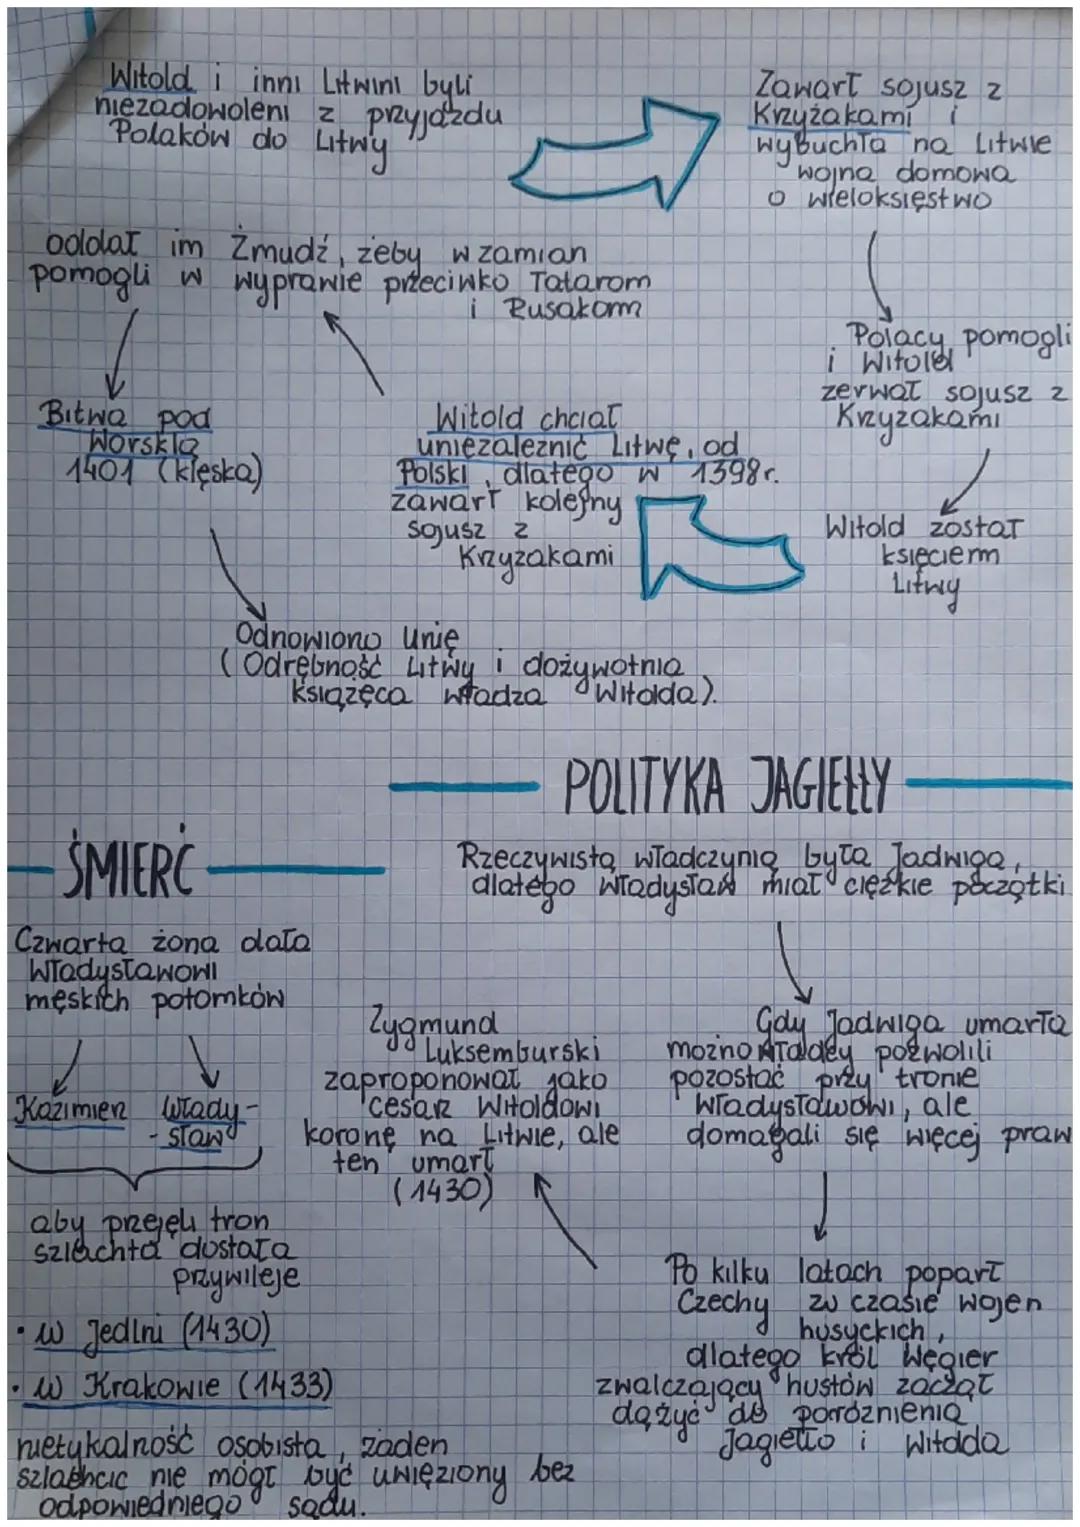 Witold i inni Litwini byli
niezadowoleni z przyjazdu
Polaków do Litwy
Zawarł sojusz z
Krzyżakami i
wybuchła na Litwie
wojna domowa
o wieloksięstwo
Polacy pomogli
i Witold
zerwał sojusz z
Krzyżakami
Witold został
księciem
Litwy
Witold chciał
uniezależnić Litwę od
Polski, dlatego w 1398r.
zawarł kolejny
sojusz z
Krzyżakami
oddał im Żmudź, żeby w zamian
pomogli w wyprawie przeciwko Tatarom
i Rusakom
Bitwa pod
Worsklą
1401 (klęska)
Odnowiono Unię
(Odrębność Litwy i dożywotnia
książęca władza Witolda).
POLITYKA JAGIEŁŁY
Rzeczywistą władczynią była Jadwiga,
dlatego Władysław miał ciężkie początki
Gdy Jadwiga umarła
możnowładcy pozwolili
pozostać przy tronie
Władysławowi, ale
domagali się więcej praw
Po kilku latach poparł
Czechy w czasie wojen
husyckich,
dlatego król Węgier
zwalczający hustów zaczął
dążyć do poróżnienia
Jagiełło i Witolda
Zygmund
Luksemburski
zaproponował jako
cesarz Witoldowi
koronę na Litwie, ale
ten umarł
(1430)
ŚMIERĆ
Czwarta żona dała
Władysławowi
męskich potomków
Kazimierz Włady-
-sław
aby przejęli tron
szlachta dostała
przywileje
• w Jedlni (1430)
• w Krakowie (1433)
nietykalność osobista, żaden
szlachcic nie mógł być uwięziony bez
odpowiedniego sądu.